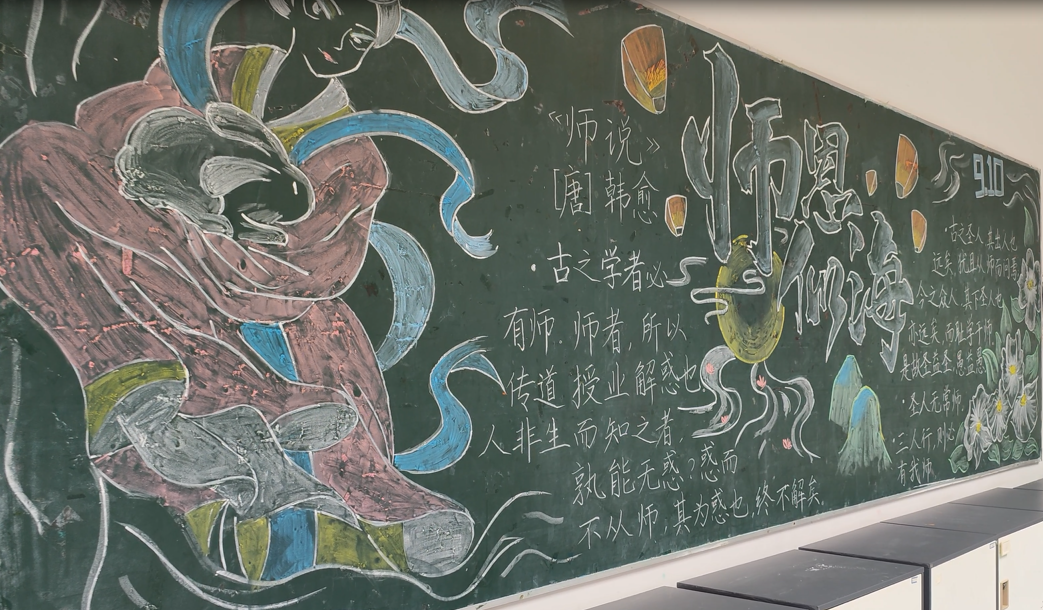 《师说》
[唐] 韩愈
·古之学者必
有师.师者,所以
传道 授业 解惑也
人非生而知之者,
孰能无惑?惑而
不从师,其为惑也,终不解矣
师恩
似海
910
·古之圣人,其出人也
远矣,犹且从师而问焉
今之众人,其下圣人也
亦远矣,而耻学于师,
是故圣益圣,愚益愚
·圣人无常师.
三人行,则必
有我师